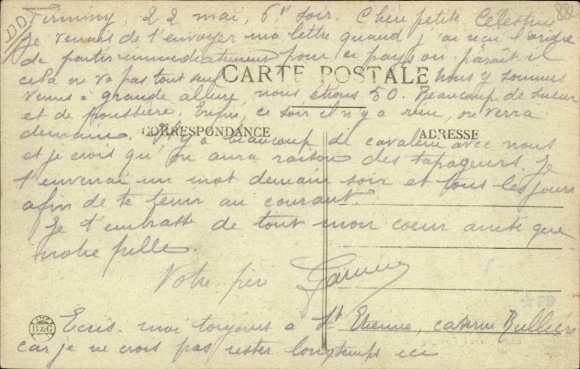 Firminy, 22 mai, 6h soir. Chère petite Célestine
Je venais de t'envoyer ma lettre quand j'ai reçu l'ordre
de partir immédiatement pour ce pays où paraît il
cela ne va pas tout seul nous y sommes
CARTE POSTALE
venus à grande allure, nous étions 50. Beaucoup de sueur
et de poussière. Enfin, ce soir il n'y a rien, on verra
demain. Il y a beaucoup de cavalerie avec nous
CORRESPONDANCE ADRESSE
et je crois qu'on aura raison des tapageurs. Je
t'enverrai un mot demain soir et tous les jours
afin de te tenir au courant.
Je t'embrasse de tout mon coeur ainsi que
notre fille
Votre père
B&G
Ecris-moi toujours à St Etienne, caserne Rullière
car je ne crois pas rester longtemps ici